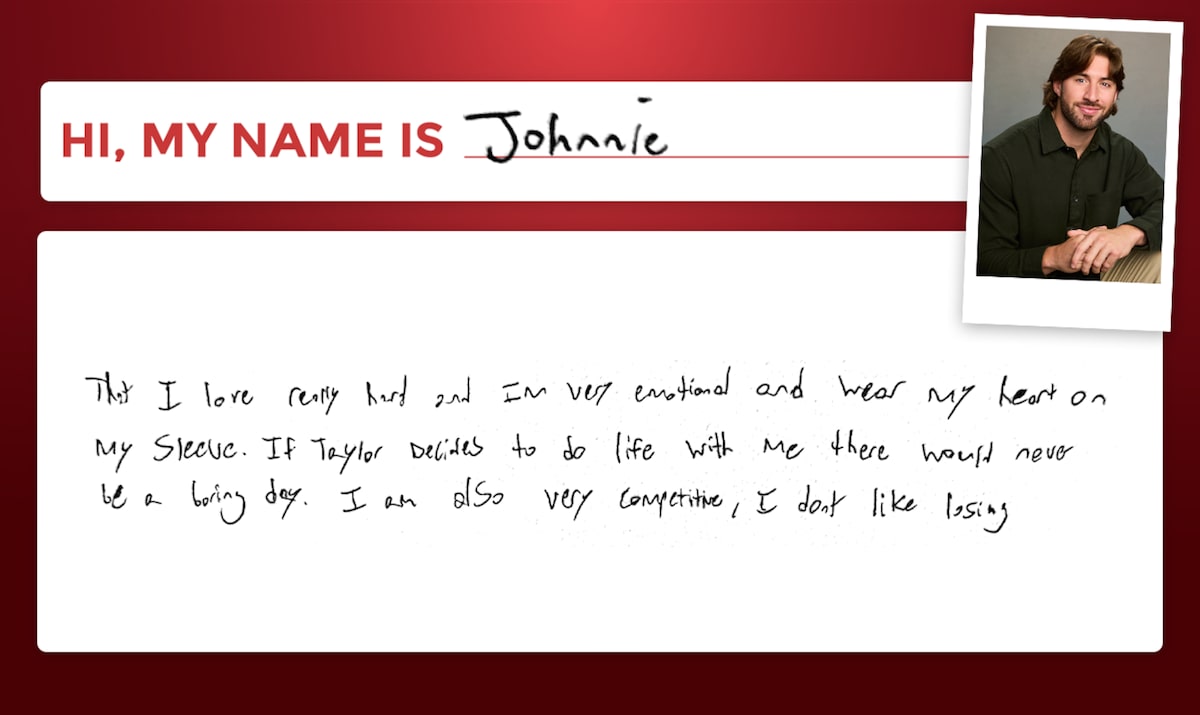 HI, MY NAME IS Johnnie
That I love really hard and Im very emotional and wear my heart on
my sleeve. If Taylor Decides to do life with me there would never
be a boring day. I am also very competitive, I dont like losing